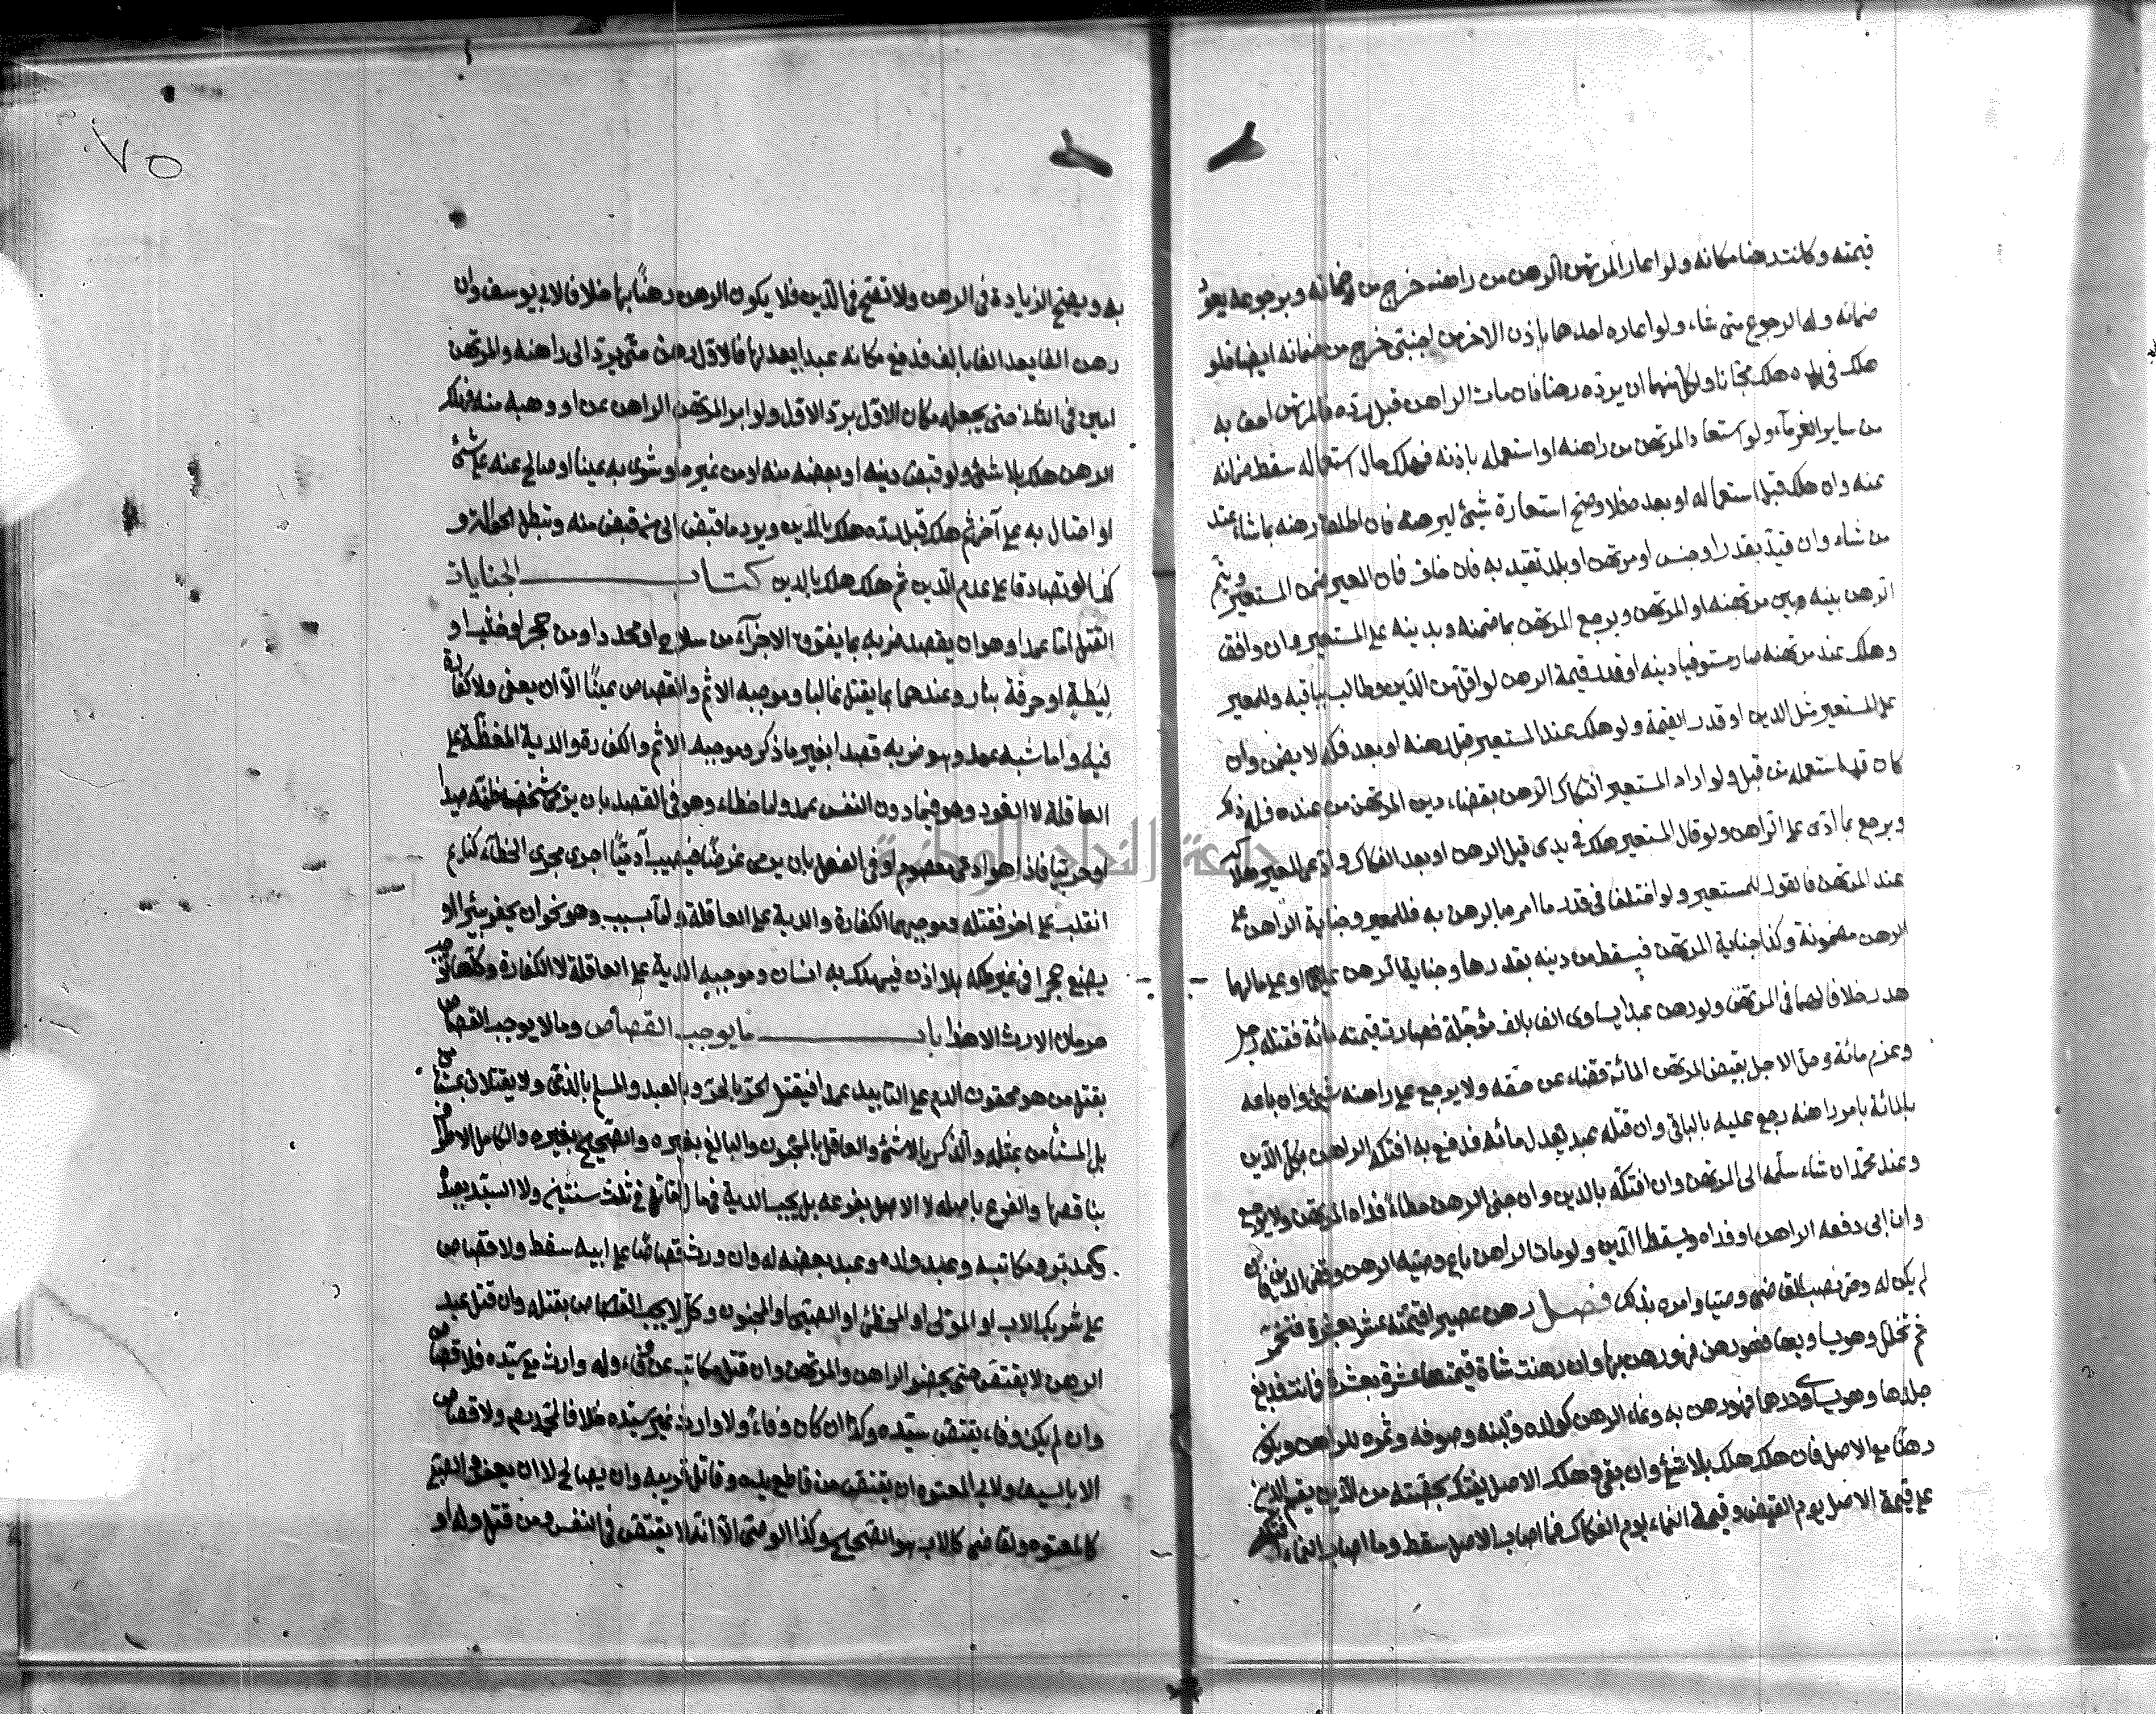 قيمته وكانت رهنا مكانه ولو اعار المرتهن الرهن من راهنه خرج من ضمانه وبرجوعه يعود
ضمانه وله الرجوع متى شاء ولو اعاره احدهما باذن الاخر من اجنبي خرج من ضمانه ايضا فلو
هلك في يده هلك مجانا ولكل منهما ان يرده رهنا فان مات الراهن قبل رده فالمرتهن احق به
من ساير الغرمآء ولو استعار المرتهن من راهنه او استعمله باذنه فهلك حال استعماله سقط ضمانه
عنه وان هلك قبل استعماله او بعده فلا وصح استعارة شيئ ليرهنه فان اطلق رهنه بما شاء عند
من شاء وان قيد بقدر او جنس او مرتهن او بلد تقيد به فان خالف فان المعير ضمن المستعير ويتم
الرهن بينه وبين مرتهنه او المرتهن ويرجع المرتهن بما ضمنه وبدينه على المستعير وان وافق
وهلك عند مرتهنه صار مستوفيا دينه او قدر قيمة الرهن لو اقل من الدين وطالب بباقيه وللمعير
على المستعير مثل الدين او قدر القيمة ولو هلك عند المستعير قبل رهنه او بعد فكه لا يضمن وان
كان قد استعمله من قبل ولو اراد المستعير افتكاك الرهن بقضاء دين المرتهن من عنده فله ذلك
ويرجع بما ادى على الراهن ولو قال المستعير هلك في يدي قبل الرهن او بعد الفكاك وادعى المعير هلاكه
عند المرتهن فالقول للمستعير ولو اختلفا في قدر ما امره بالرهن به فللمعير وجناية الراهن على
الرهن مضمونة وكذا جناية المرتهن فيسقط من دينه بقدرها وجناية الرهن عليهما او على مالهما
هدر خلافا لهما في المرتهن ولو رهن عبدا يساوى الفا بالف مؤجلة فصارت قيمته مائة فقتله رجل
وغرم مائة وحل الاجل يقبض المرتهن المائة قضاء عن حقه ولا يرجع على راهنه بشيئ وان باعه
بالمائة بامر راهنه رجع عليه بالباقي وان قتله عبد يعدل مائه فدفع به افتكه الراهن بكل الدين
وعند محمد ان شاء سلمه الى المرتهن وان افتكه بالدين وان جنى الرهن خطاء فداه المرتهن ولا يرجع
وان ابى دفعه الراهن او فداه ويسقط الدين ولو مات الراهن باع وصيه الرهن وقضى الدين فان
لم يكن له وصي نصب القاضي وصيا وامره بذلك فصل رهن عصيرا قيمته عشر بعشرة فتخمر
ثم تخلل وهو يساويها فهو رهن بها وان رهنت شاة قيمتها عشرة بعشرة فماتت فدبغ
جلدها وهو يساوى درهما فهو رهن به ونماء الرهن كولده ولبنه وصوفه وثمره للراهن ويكون
رهنا مع الاصل فان هلك هلك بلا شئ وان بقي وهلك الاصل يفتك بحصته من الدين يقسم الدين
على قيمة الاصل يوم القبض وقيمة النماء يوم الفكاك فما اصاب الاصل سقط وما اصاب النماء افتك
به ويصح الزيادة في الرهن ولا تصح في الدين فلا يكون الرهن رهنًا بها خلافا لابي يوسف وان
رهن الفا يعدل الفا بالف فدفع مكانه عبدا يعدلها فالاول رهن حتى يرد الى راهنه والمرتهن
امين في الثاني حتى يجعله مكان الاول برد الاول ولو ابرا المرتهن الراهن عن او وهبه منه فهلك
الرهن هلك بلا شئ ولو قبض دينه او بعضه منه او من غيره او شرى به عينا او صالح عنه على شئ
او احتال به على آخر ثم هلك قبل رده هلك بالدين ويرد ما قبض الى من قبض منه وتبطل الحوالة و
كذا لو تصادقا على عدم الدين ثم هلك هلك بالدين كتاب الجنايات
القتل اما عمد وهو ان يقصد ضربه بما يفرق الاجزآء من سلاح او محدد او من حجر او خشب او
ليطة او حرقة بنار وعندهما بما يقتل غالبا وموجبه الاثم والقصاص عينًا الا ان يعفى ولا كفارة
فيه واما شبه عمد وهو ضربه قصدا بغير ما ذكر وموجبه الاثم والكفارة والدية المغلظة على
العاقلة لا القود وهو فيما دون النفس عمد واما خطاء وهو في القصد بان يرمى شخصا ظنه صيدا
او حربيا فاذا هو ادمي معصوم او في الفعل بان يرمى غرضًا فيصيب آدميًا اجرى مجرى الخطآء كنائم
انقلب على اخر فقتله وموجبهما الكفارة والدية على العاقلة واما بسبب وهو نحو ان يحفر بئرا او
يضع حجرا في غير ملكه بلا اذن فيهلك به انسان وموجبه الدية على العاقلة لا الكفارة وكلها توجب
حرمان الارث الا هذا باب ما يوجب القصاص وما لا يوجب القصاص
يقتل من هو محقون الدم على التابيد عمدا فيقتل الحر بالحر وبالعبد والمسلم بالذمى ولا يقتلان بمستأمن
بل المستأمن بمثله والذكر بالانثى والعاقل بالمجنون والبالغ بغيره والصحيح بغيره والكامل الاطراف
بناقصها والفرع باصله لا الاصل بفرعه بل يجب الدية في مال القاتل في ثلث سنتين ولا السيد بعبده
ومدبره ومكاتبه وعبد ولده وعبد بعضه له وان ورث قصاصًا على ابيه سقط ولا قصاص
على شريك الاب او المولى او المخطئ او الصبي او المجنون وكل لا يجب القصاص بقتله وان قتل عبد
الرهن لا يقتص حتى يحضر الراهن والمرتهن وان قتل مكاتب عن وفاء وله وارث مع سيده فلا قصاص
وان لم يكن وفاء يقتص سيده وكذا ان كان وفاء ولا وارث غير سيده خلافا لمحمد ولا قصاص
الا بالسيف ولاب المعتوه ان يقتص من قاطع يده وقاتل قريبه وان يصالح لا ان يعفو والصبي
كالمعتوه والقاضي كالاب هو الصحيح وكذا الوصي الا انه لا يقتص في النفس ومن قتل وله او